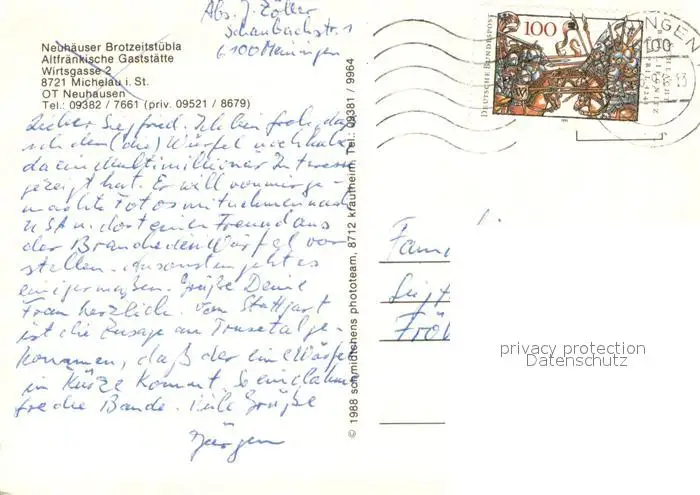 Abs. J. Zöller
Schaubachstr. 1
6100 Meiningen
Neuhäuser Brotzeitstübla
Altfränkische Gaststätte
Wirtsgasse 2
8721 Michelau i. St.
OT Neuhausen
Tel.: 09382 / 7661 (priv. 09521 / 8679)
Lieber Siegfried. Ich bin froh, daß
ich den (die) Würfel noch habe
da ein Multimillionär Interesse
gezeigt hat. Er will von mir ge-
machte Fotos mitnehmen nach
USA u. dort einen Freund aus
der Branche den Würfel vor
stellen. Ansonsten geht es
einigermaßen. Grüße Deine
Frau herzlich. Vom Stuttgart
ist die Zusage an Trusetal ge-
kommen, daß der eine Würfel
in Kürze kommt. So eine lahme
freche Bande. Viele Grüße
Jürgen
© 1988 schmidtchens phototeam, 8712 krautheim, Tel.: 09381 / 9964
DEUTSCHE BUNDESPOST
100
NGEN
100
Fam
Fröl
privacy protection
Datenschutz